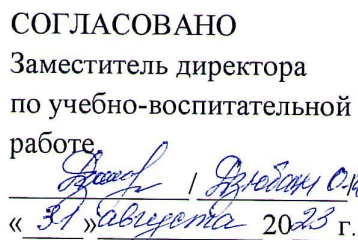 СОГЛАСОВАНО
Заместитель директора
по учебно-воспитательной
работе
/ Дзюбан О.Н
« 31 » августа 2023 г.